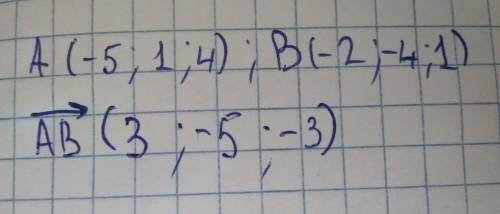 A (-5; 1; 4); B(-2; -4; 1)
\overrightarrow{AB} (3; -5; -3)